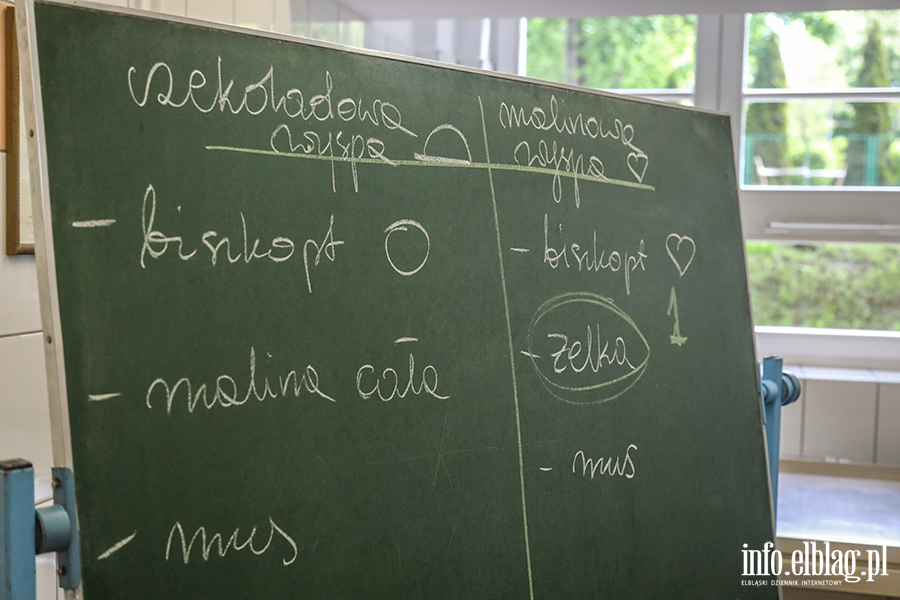 czekoladowa
wyspa
- biszkopt
- malina cała
- mus
malinowa
wyspa
- biszkopt
- żelka 1
- mus
info.elblag.pl
ELBLĄSKI DZIENNIK INTERNETOWY